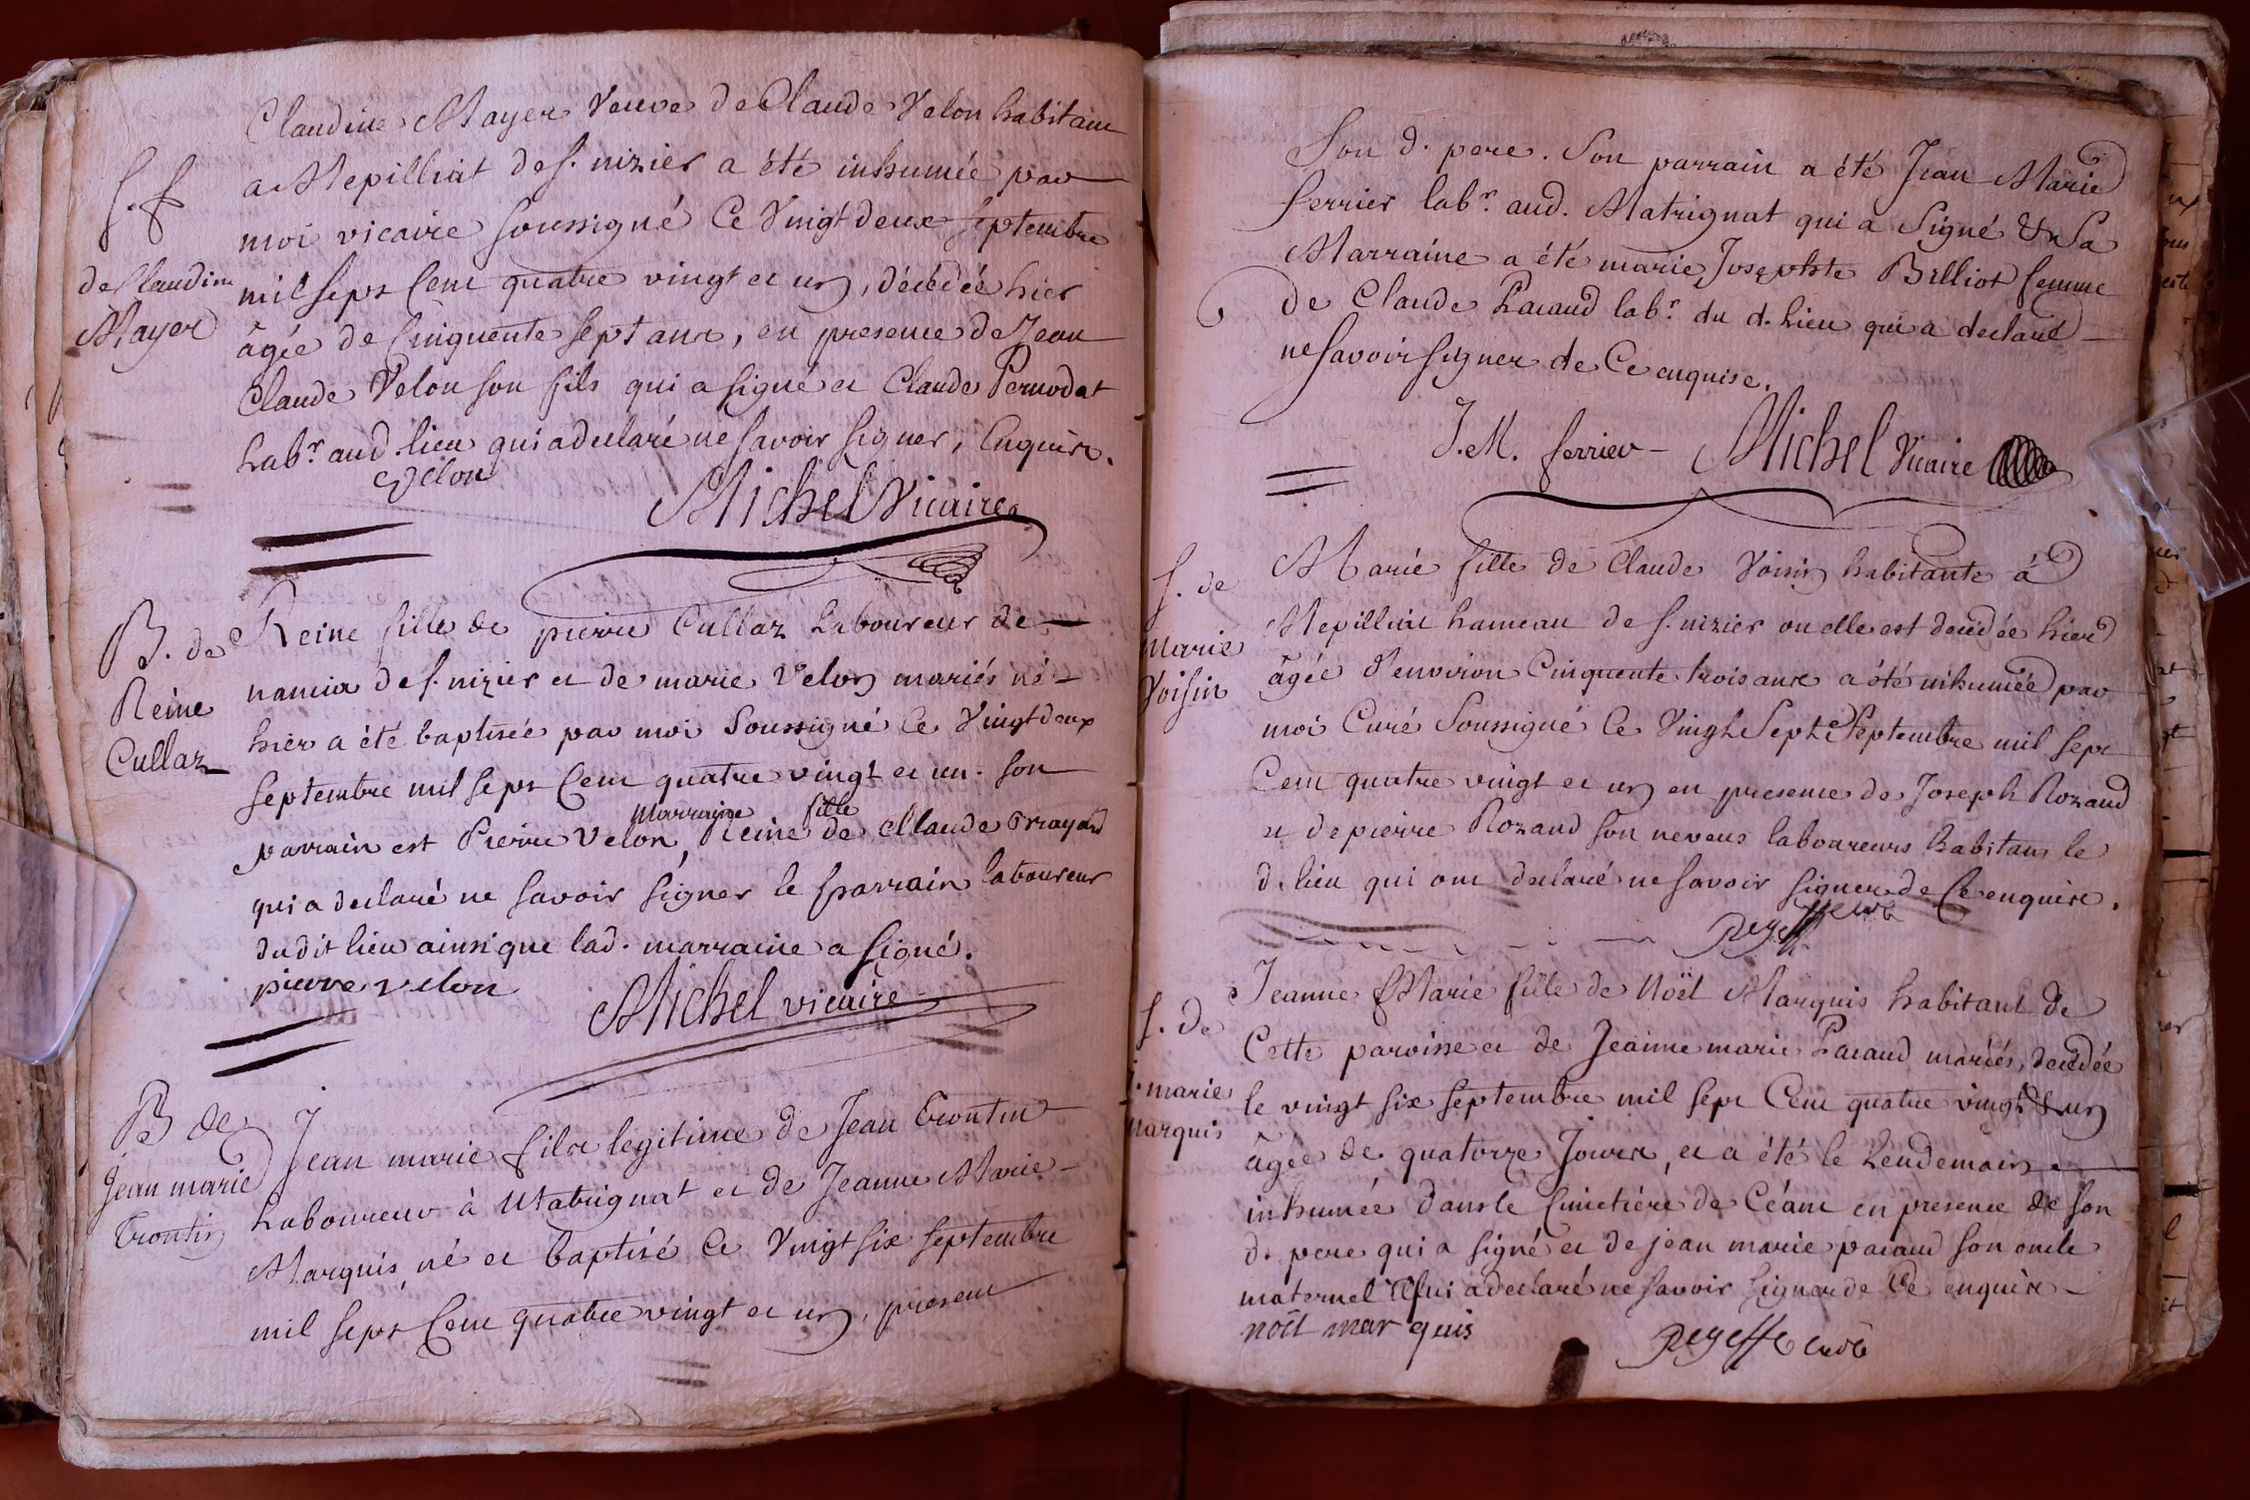 Claudine Mayer Veuve de Claude Velon habitant
a Mepilliat de s. nizier a été inhumée par
S. f
moi vicaire soussigné Ce Vingt deux septembre
de Claudine
mil sept Cent quatre vingt et un, décédée hier
Mayer
âgée de Cinquente sept ans, en presence de Jean
Claude Velon son fils qui a signé et Claude Pernodat
labr. aud. lieu qui a declaré ne savoir signer, Enquise.
Velon
Michel Vicaire
B. de
Reine
Cullaz
Reine fille de pierre Cullaz Laboureur de
nancia de s. nizier et de marie Velon mariés né
hier a été baptisée par moi Soussigné Ce Vingt deux
septembre mil sept Cent quatre vingt et un. son
marraine fille
parrain est Pierre Velon, Reine de Claude
qui a declaré ne savoir signer le parrain laboureur
du dit lieu ainsi que lad. marraine a signé.
pierre velon
Michel vicaire
B de
Jean marie
Trontin
Jean marie fils legitime de Jean Trontin
Laboureur à Matrignat et de Jeanne Marie
Marquis, né et baptisé Ce Vingt six septembre
mil sept Cent quatre vingt et un, present
Son d. pere. Son parrain a été Jean Marie
ferrier labr. aud. Matrignat qui a Signé & Sa
Marraine a été marie Josephte Billiot femme
de Claude Pacaud labr. du d. Lieu qui a declaré
ne savoir signer de Ce enquise.
J. M. ferrier
Michel Vicaire
S. de
Marie
Voisin
Marie fille de Claude Voisin habitante à
Mepilliat hameau de s. nizier ou elle est decédée hier
âgée d'environ Cinquente trois ans a été inhumée par
moi Curé Soussigné le Vingt Sept Septembre mil sept
Cent quatre vingt et un en presence de Joseph Rozand
et de pierre Rozand son neveus laboureurs habitans le
d. lieu qui ont declaré ne savoir signer de Ce enquise.
Peysse curé
S. de
J. marie
Marquis
Jeanne Marie fille de Noël Marquis habitant de
Cette paroisse et de Jeanne marie Pacaud mariés, decédée
le vingt six septembre mil sept Cent quatre vingt & un
âgée de quatorze Jours, et a été le Lendemain
inhumée dans le Cimetière de Céans en presence de son
d. pere qui a signé et de jean marie pacaud son oncle
maternel qui a declaré ne savoir signer de Ce enquise
noël mar quis
curé